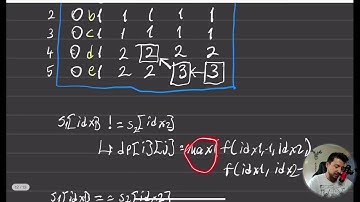 2 0 b 1 1 1 1 1
3 0 c 1 1 1 1 1
4 0 d 1 2 2 2 2
5 0 e 1 2 2 3 3
S1[idx1] != S2[idx2]
↳ dp[i][j] = max( f(idx1-1, idx2,)
f(idx1, idx2-
S1[idx1] == S2[idx2]